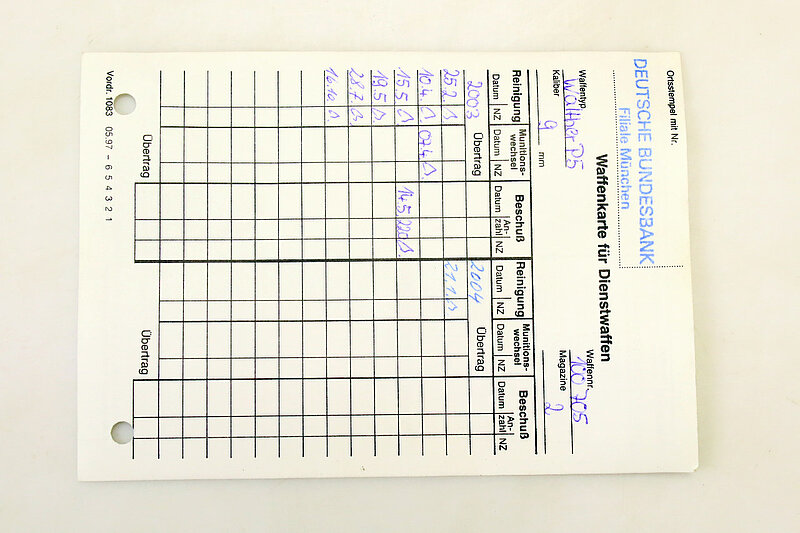 Ortsstempel mit Nr.
DEUTSCHE BUNDESBANK
Filiale München
Waffenkarte für Dienstwaffen
Waffentyp Walther P5 Waffennr. 100705
Kaliber 9 mm Magazine 2
Reinigung Munitions-wechsel Beschuß Reinigung Munitions-wechsel Beschuß
Datum NZ Datum NZ Datum An-zahl NZ Datum NZ Datum NZ Datum An-zahl NZ
2003 Übertrag 2004 Übertrag
25.2. 21.1.
10.4. 07.4.
15.5. 14.5. 220
19.5.
28.7.
16.10.
Übertrag Übertrag
Vordr. 1083 05.97 – 6 5 4 3 2 1